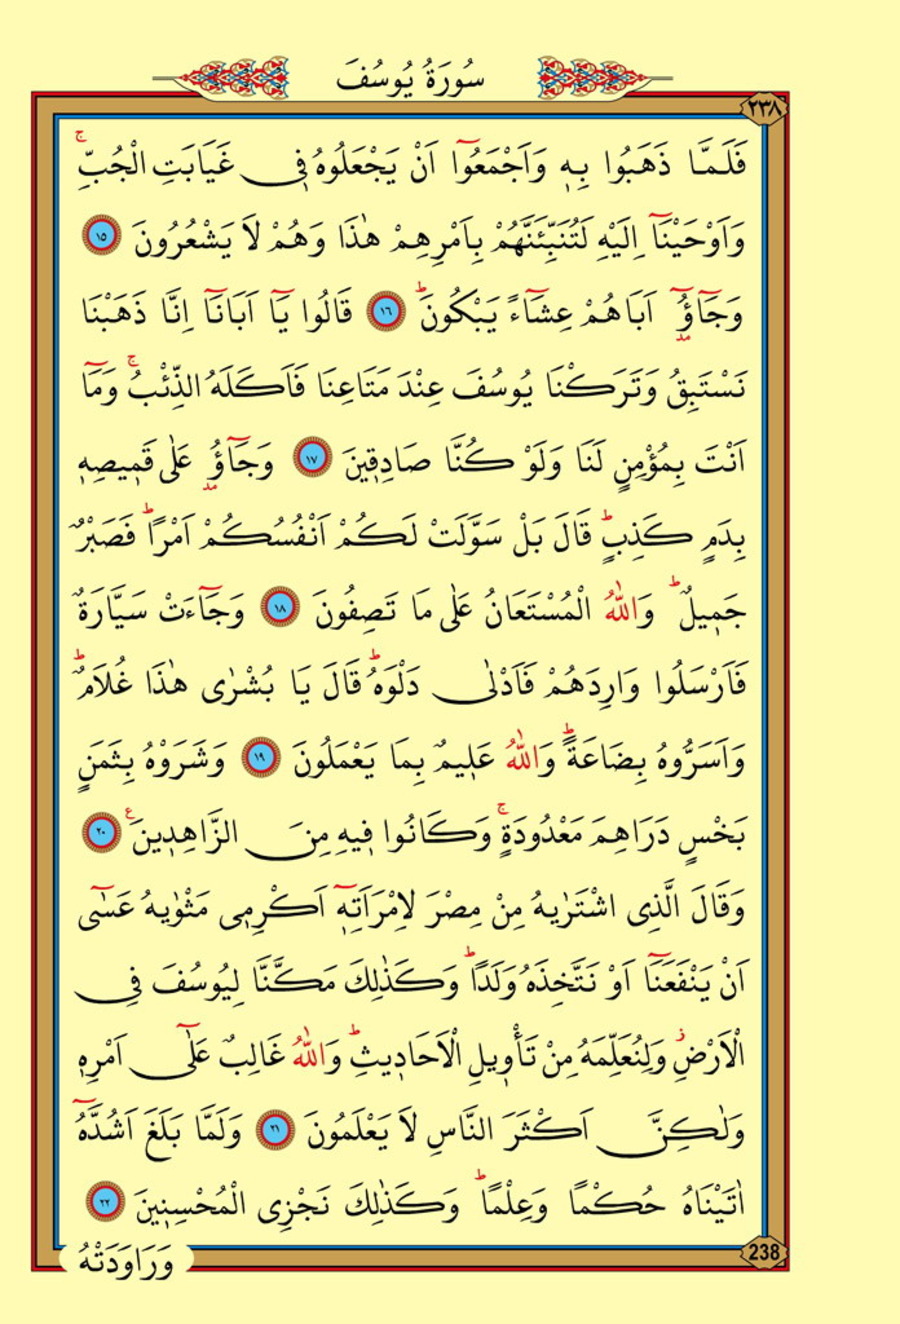 سُورَةُ يُوسُفَ
٢٣٨
فَلَمَّا ذَهَبُوا بِه۪ وَاَجْمَعُٓوا اَنْ يَجْعَلُوهُ ف۪ي غَيَابَتِ الْجُبِّۚ
وَاَوْحَيْنَٓا اِلَيْهِ لَتُنَبِّئَنَّهُمْ بِاَمْرِهِمْ هٰذَا وَهُمْ لَا يَشْعُرُونَ ١٥
وَجَٓاؤُٓ اَبَاهُمْ عِشَٓاءً يَبْكُونَۜ ١٦ قَالُوا يَٓا اَبَانَٓا اِنَّا ذَهَبْنَا
نَسْتَبِقُ وَتَرَكْنَا يُوسُفَ عِنْدَ مَتَاعِنَا فَاَكَلَهُ الذِّئْبُۚ وَمَٓا
اَنْتَ بِمُؤْمِنٍ لَنَا وَلَوْ كُنَّا صَادِق۪ينَ ١٧ وَجَٓاؤُ عَلٰى قَم۪يصِه۪
بِدَمٍ كَذِبٍۜ قَالَ بَلْ سَوَّلَتْ لَكُمْ اَنْفُسُكُمْ اَمْرًاۜ فَصَبْرٌ
جَم۪يلٌۜ وَاللّٰهُ الْمُسْتَعَانُ عَلٰى مَا تَصِفُونَ ١٨ وَجَٓاءَتْ سَيَّارَةٌ
فَاَرْسَلُوا وَارِدَهُمْ فَاَدْلٰى دَلْوَهُۜ قَالَ يَا بُشْرٰى هٰذَا غُلَامٌۜ
وَاَسَرُّوهُ بِضَاعَةًۜ وَاللّٰهُ عَل۪يمٌ بِمَا يَعْمَلُونَ ١٩ وَشَرَوْهُ بِثَمَنٍ
بَخْسٍ دَرَاهِمَ مَعْدُودَةٍۚ وَكَانُوا ف۪يهِ مِنَ الزَّاهِد۪ينَ۟ ٢٠
وَقَالَ الَّذِى اشْتَرٰيهُ مِنْ مِصْرَ لِامْرَاَتِه۪ٓ اَكْرِم۪ى مَثْوٰيهُ عَسٰٓى
اَنْ يَنْفَعَنَٓا اَوْ نَتَّخِذَهُ وَلَدًاۜ وَكَذٰلِكَ مَكَّنَّا لِيُوسُفَ فِي
الْاَرْضِۘ وَلِنُعَلِّمَهُ مِنْ تَأْو۪يلِ الْاَحَاد۪يثِۜ وَاللّٰهُ غَالِبٌ عَلٰٓى اَمْرِه۪
وَلٰكِنَّ اَكْثَرَ النَّاسِ لَا يَعْلَمُونَ ٢١ وَلَمَّا بَلَغَ اَشُدَّهُٓ
اٰتَيْنَاهُ حُكْمًا وَعِلْمًاۜ وَكَذٰلِكَ نَجْزِى الْمُحْسِن۪ينَ ٢٢
238
وَرَاوَدَتْهُ